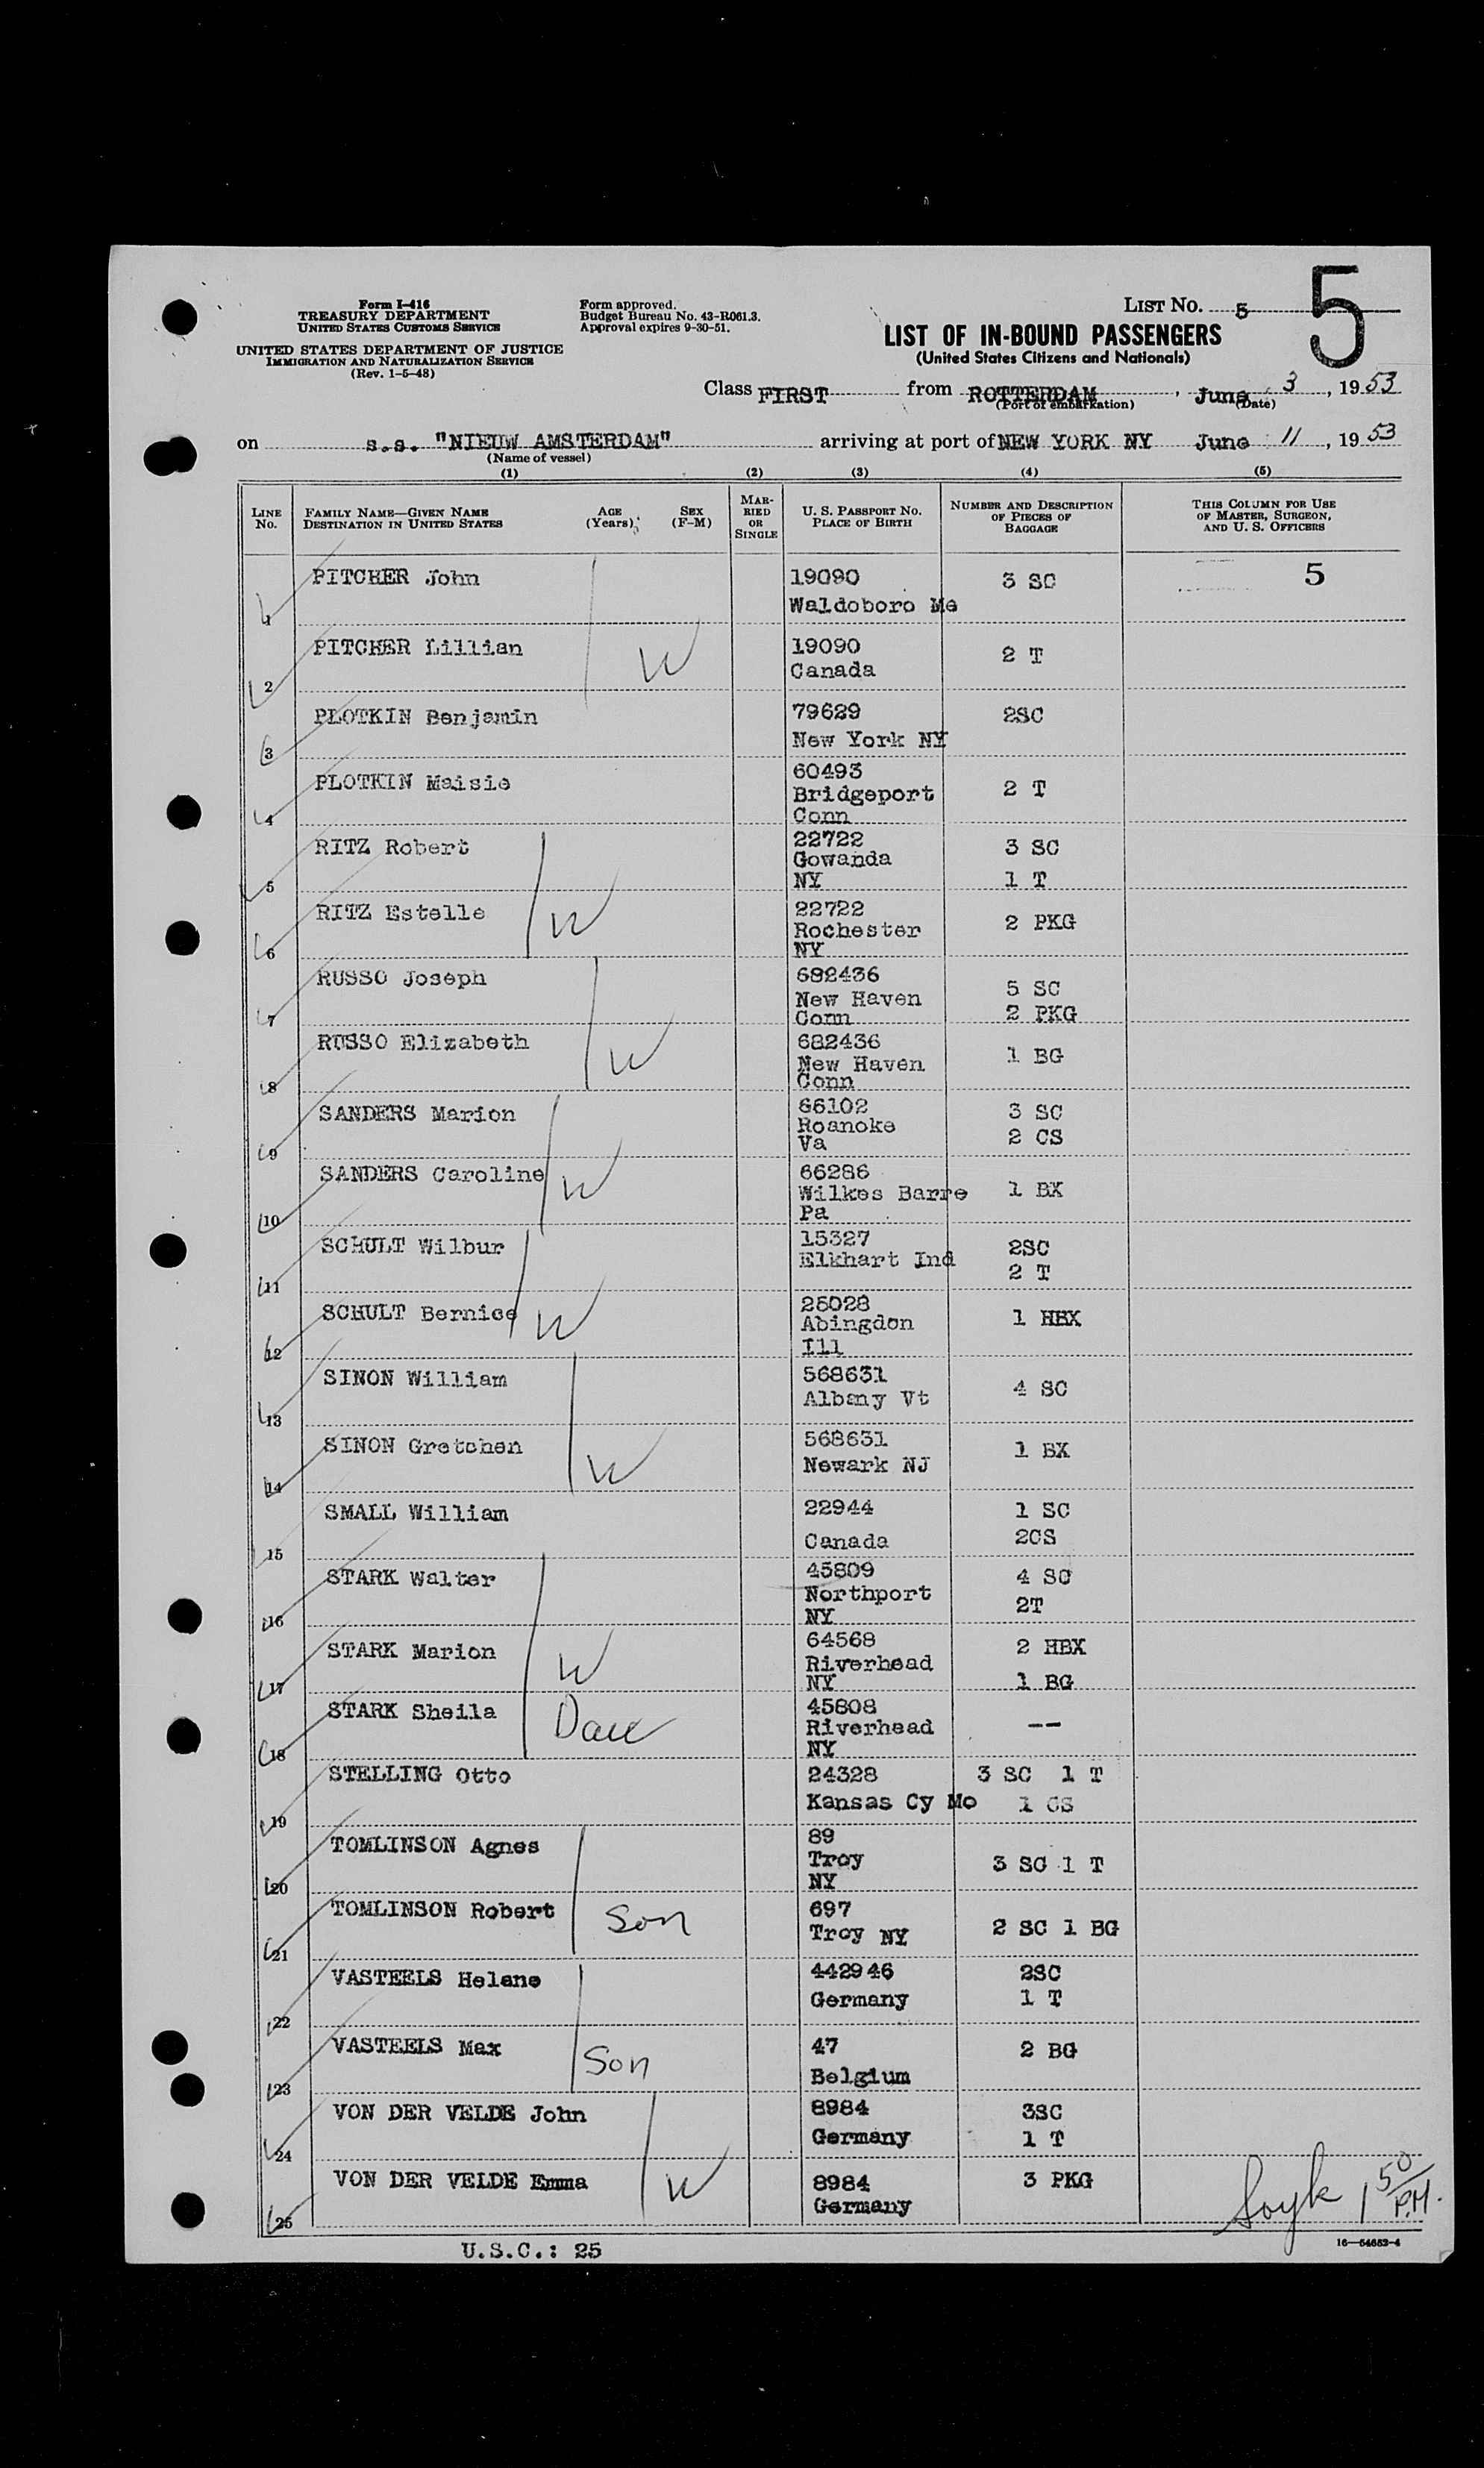 Form I-416
TREASURY DEPARTMENT
UNITED STATES CUSTOMS SERVICE
UNITED STATES DEPARTMENT OF JUSTICE
IMMIGRATION AND NATURALIZATION SERVICE
(Rev. 1-5-48)
Form approved.
Budget Bureau No. 43-R061.3.
Approval expires 9-30-51.
LIST No. 5
5
LIST OF IN-BOUND PASSENGERS
(United States Citizens and Nationals)
Class FIRST from ROTTERDAM, June 3, 1953
(Port of embarkation) (Date)
on s.s. "NIEUW AMSTERDAM" arriving at port of NEW YORK NY June 11, 1953
(Name of vessel)
(1) (2) (3) (4) (5)
LINE No. FAMILY NAME—GIVEN NAME DESTINATION IN UNITED STATES AGE (Years) SEX (F-M) MARRIED OR SINGLE U. S. PASSPORT No. PLACE OF BIRTH NUMBER AND DESCRIPTION OF PIECES OF BAGGAGE THIS COLUMN FOR USE OF MASTER, SURGEON, AND U. S. OFFICERS
1 PITCHER John 19090 Waldoboro Me 3 SC 5
2 PITCHER Lillian W 19090 Canada 2 T
3 PLOTKIN Benjamin 79629 New York NY 2SC
4 PLOTKIN Maisie 60493 Bridgeport Conn 2 T
5 RITZ Robert 22722 Gowanda NY 3 SC 1 T
6 RITZ Estelle W 22722 Rochester NY 2 PKG
7 RUSSO Joseph 682436 New Haven Conn 5 SC 2 PKG
8 RUSSO Elizabeth W 682436 New Haven Conn 1 BG
9 SANDERS Marion 66102 Roanoke Va 3 SC 2 CS
10 SANDERS Caroline W 66286 Wilkes Barre Pa 1 BX
11 SCHULT Wilbur 15327 Elkhart Ind 2SC 2 T
12 SCHULT Bernice W 25028 Abingdon Ill 1 HBX
13 SINON William 568631 Albany Vt 4 SC
14 SINON Gretchen W 568631 Newark NJ 1 BX
15 SMALL William 22944 Canada 1 SC 2CS
16 STARK Walter 45809 Northport NY 4 SC 2T
17 STARK Marion W 64568 Riverhead NY 2 HBX 1 BG
18 STARK Sheila Dau 45808 Riverhead NY --
19 STELLING Otto 24328 Kansas Cy Mo 3 SC 1 T 1 CS
20 TOMLINSON Agnes 89 Troy NY 3 SC 1 T
21 TOMLINSON Robert Son 697 Troy NY 2 SC 1 BG
22 VASTEELS Helene 442946 Germany 2SC 1 T
23 VASTEELS Max Son 47 Belgium 2 BG
24 VON DER VELDE John 8984 Germany 3SC 1 T
25 VON DER VELDE Emma W 8984 Germany 3 PKG
1 50 P.M.
16—54652-4
U.S.C.: 25